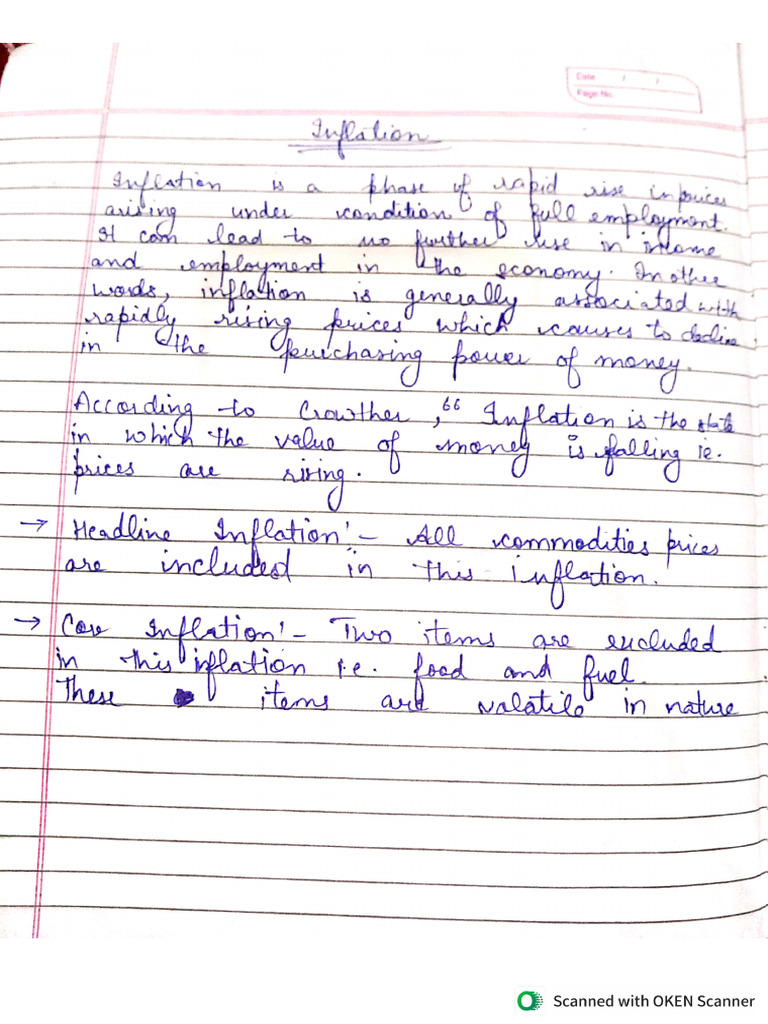 Date / /
Page No.
Inflation
Inflation is a phase of rapid rise in prices
arising under condition of full employment.
It can lead to no further rise in income
and employment in the economy. In other
words, inflation is generally associated with
rapidly rising prices which causes to decline
in the purchasing power of money.
According to Crowther, “Inflation is the state
in which the value of money is falling ie.
prices are rising.
→ Headline Inflation:- All commodities prices
are included in this inflation.
→ Core Inflation:- Two items are excluded
in this inflation i.e. food and fuel.
These items are valatile in nature
Scanned with OKEN Scanner